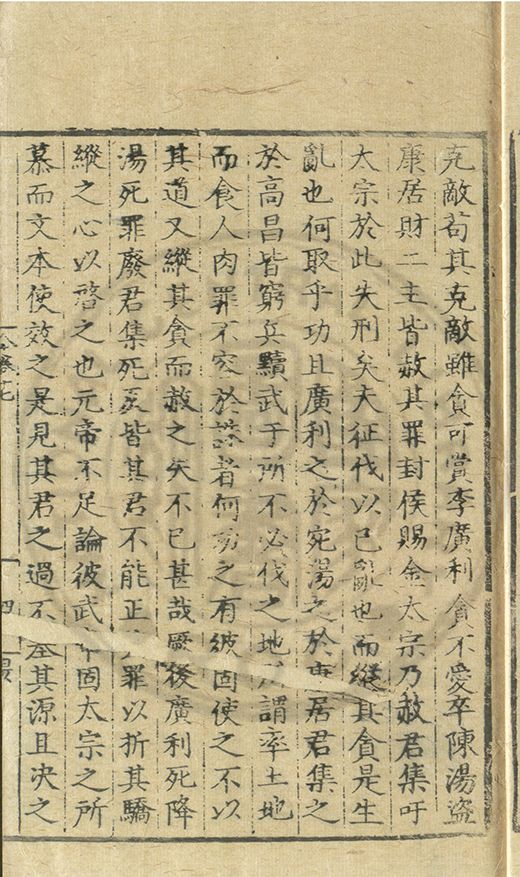 克敵苟其克敵雖貪可賞李廣利貪不愛卒陳湯盜
康居財二主皆赦其罪封侯賜金太宗乃赦君集吁
太宗於此失刑矣夫征伐以已亂也而縱其貪是生
亂也何取乎功且廣利之於宛湯之於康居君集之
於高昌皆窮兵黷武于所不必伐之地所謂率土地
而食人肉罪不容於誅者何功之有彼固使之不以
其道又縱其貪而赦之失不已甚哉厥後廣利死降
湯死罪廢君集死反皆其君不能正其罪以折其驕
縱之心以啓之也元帝不足論彼武帝固太宗之所
慕而文本使效之是見其君之過不塞其源且決之
四